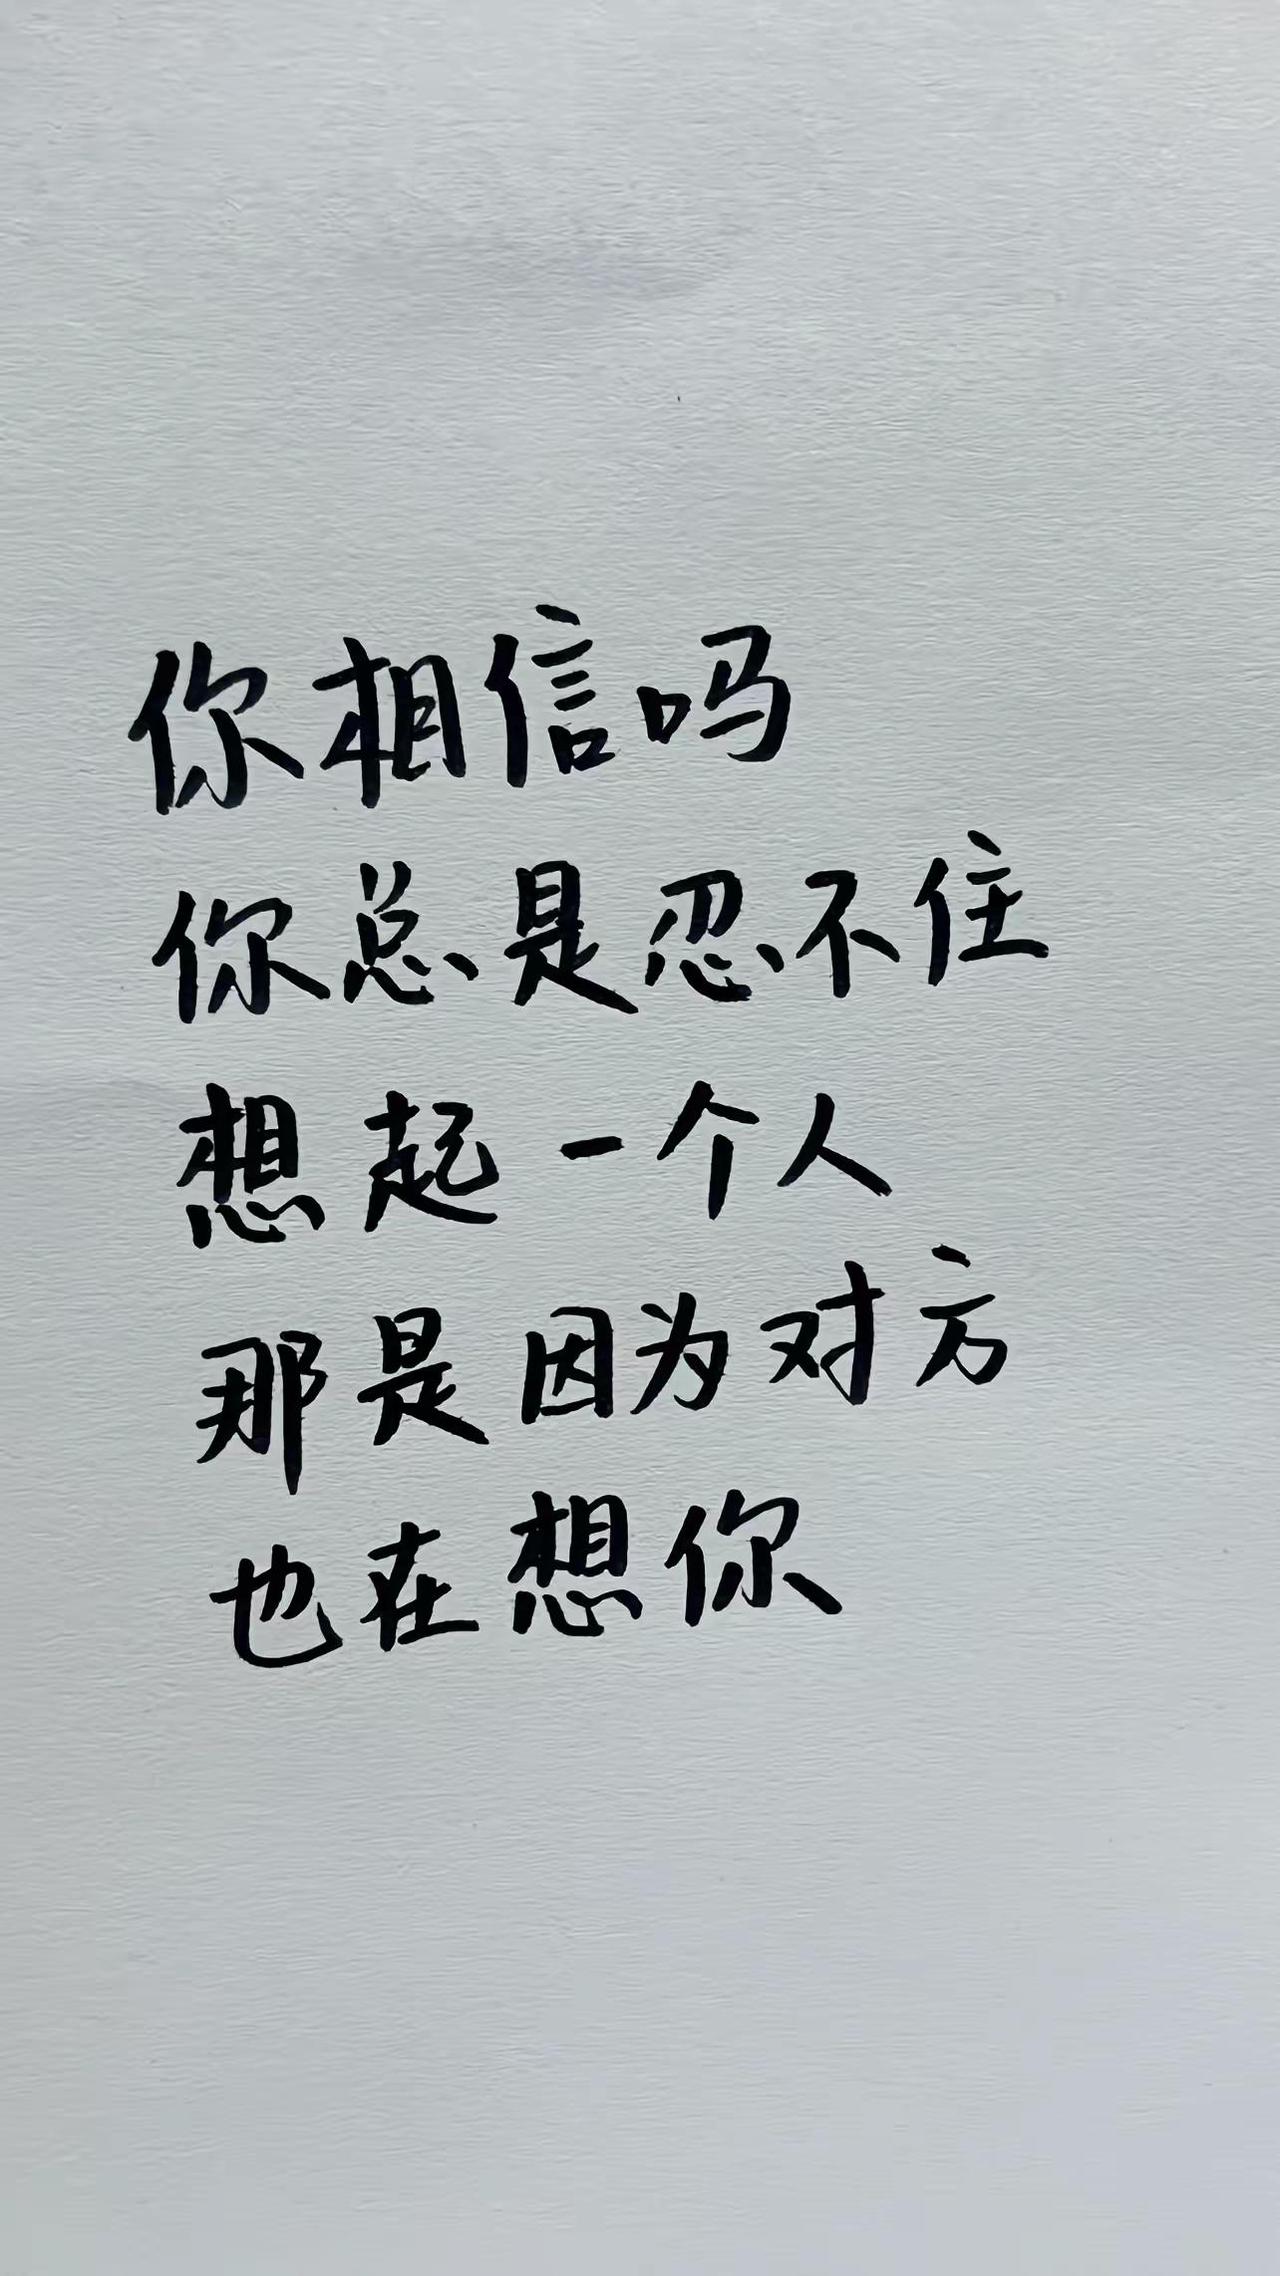 你相信吗
你总是忍不住
想起一个人
那是因为对方
也在想你